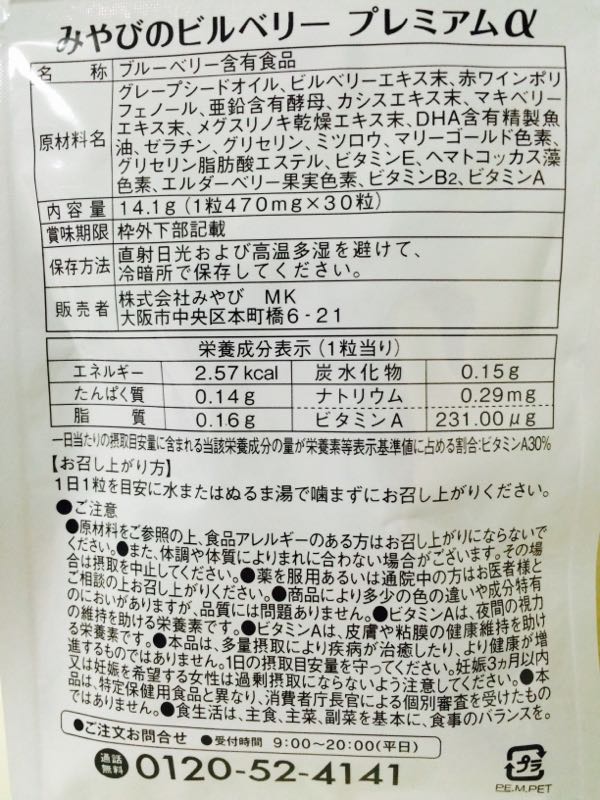 みやびのビルベリー プレミアムα
名称 ブルーベリー含有食品
原材料名 グレープシードオイル、ビルベリーエキス末、赤ワインポリ
フェノール、亜鉛含有酵母、カシスエキス末、マキベリー
エキス末、メグスリノキ乾燥エキス末、DHA含有精製魚
油、ゼラチン、グリセリン、ミツロウ、マリーゴールド色素、
グリセリン脂肪酸エステル、ビタミンE、ヘマトコッカス藻
色素、エルダーベリー果実色素、ビタミンB2、ビタミンA
内容量 14.1g（1粒470mg×30粒）
賞味期限 枠外下部記載
保存方法 直射日光および高温多湿を避けて、
冷暗所で保存してください。
販売者 株式会社みやび MK
大阪市中央区本町橋6-21
栄養成分表示（1粒当り）
エネルギー 2.57kcal 炭水化物 0.15g
たんぱく質 0.14g ナトリウム 0.29mg
脂質 0.16g ビタミンA 231.00μg
一日当たりの摂取目安量に含まれる当該栄養成分の量が栄養素等表示基準値に占める割合:ビタミンA30%
【お召し上がり方】
1日1粒を目安に水またはぬるま湯で噛まずにお召し上がりください。
●ご注意
●原材料をご参照の上、食品アレルギーのある方はお召し上がりにならないで
ください。●また、体調や体質によりまれに合わない場合がございます。その場
合は摂取を中止してください。●薬を服用あるいは通院中の方はお医者様と
ご相談の上お召し上がりください。●商品により多少の色の違いや成分特有
のにおいがありますが、品質には問題ありません。●ビタミンAは、夜間の視力
の維持を助ける栄養素です。●ビタミンAは、皮膚や粘膜の健康維持を助け
る栄養素です。●本品は、多量摂取により疾病が治癒したり、より健康が増
進するものではありません。1日の摂取目安量を守ってください。妊娠3ヵ月以内
又は妊娠を希望する女性は過剰摂取にならないよう注意してください。●本
品は、特定保健用食品と異なり、消費者庁長官による個別審査を受けたもの
ではありません。●食生活は、主食、主菜、副菜を基本に、食事のバランスを。
●ご注文お問合せ ●受付時間 9:00〜20:00(平日)
通話無料 0120-52-4141
プラ
P.E.M.PET